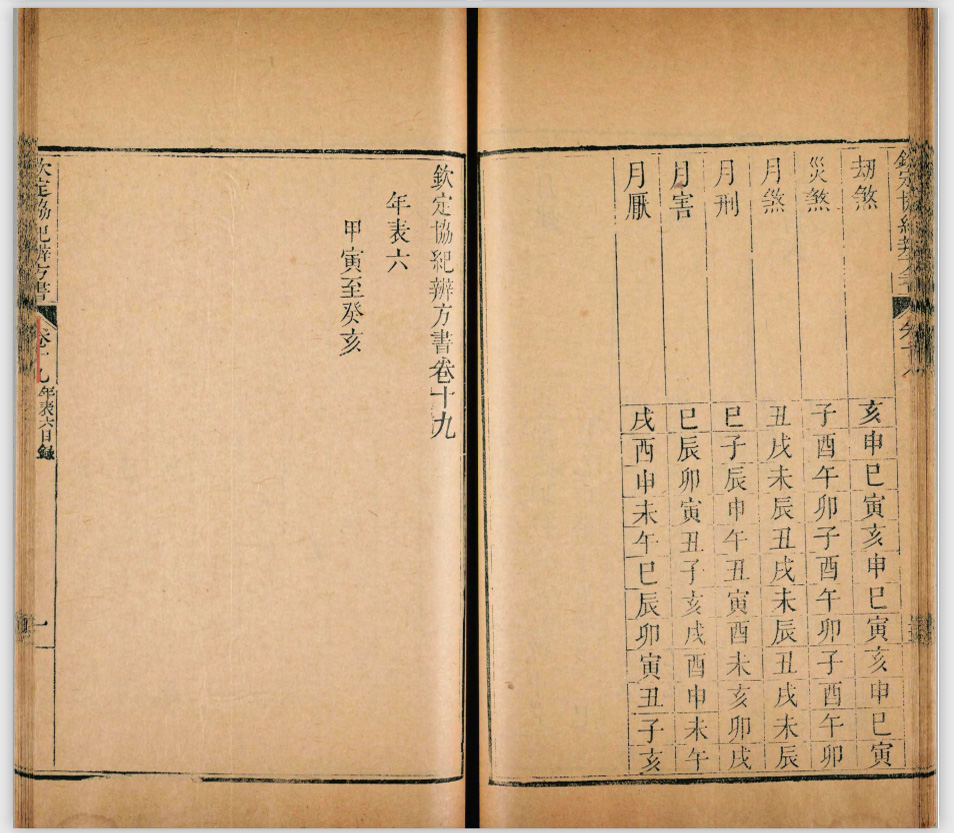 劫煞 亥申巳寅亥申巳寅亥申巳寅
災煞 子酉午卯子酉午卯子酉午卯
月煞 丑戌未辰丑戌未辰丑戌未辰
月刑 巳子辰申午丑寅酉未亥卯戌
月害 巳辰卯寅丑子亥戌酉申未午
月厭 戌酉申未午巳辰卯寅丑子亥
欽定協紀辨方書卷十九
年表六
甲寅至癸亥
欽定協紀辨方書 卷十九 年表六目録 一